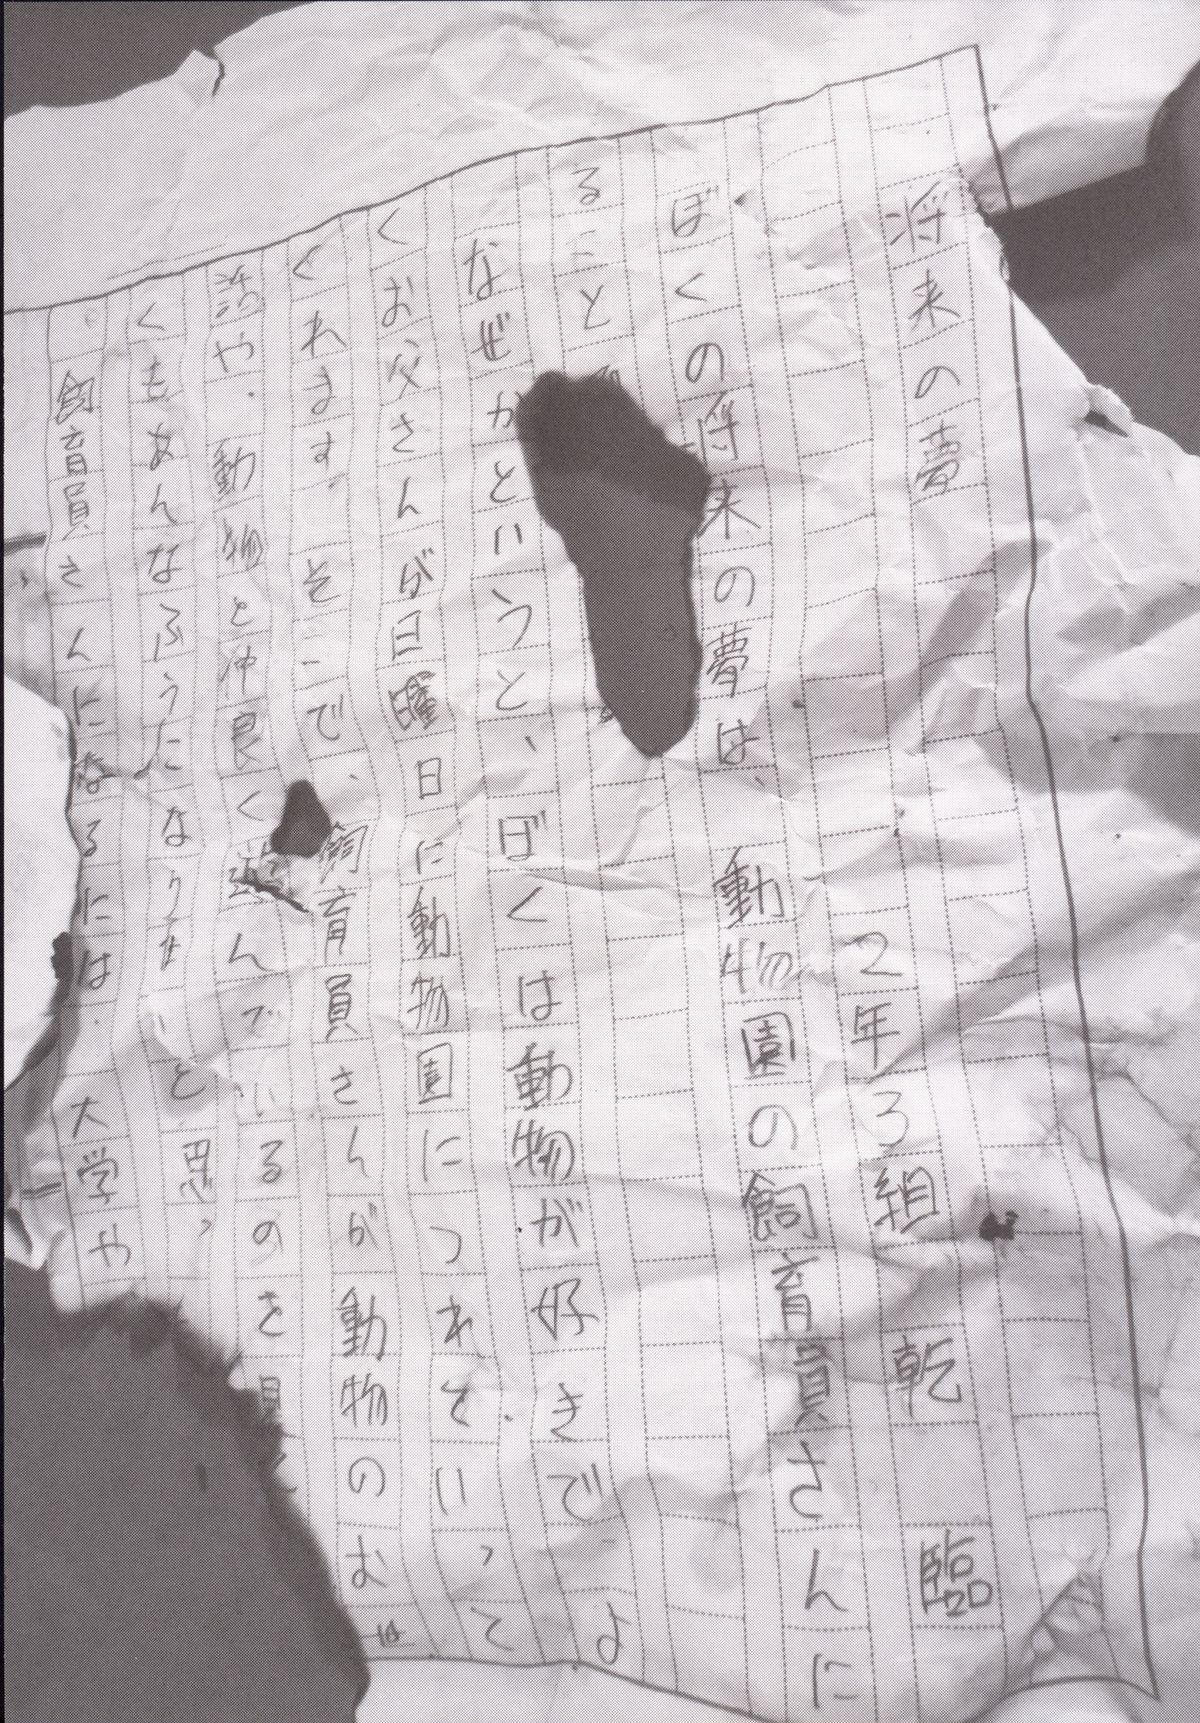 将来の夢
2年3組 乾 臨
ぼくの将来の夢は、動物園の飼育員さんに
ること
なぜかというと、ぼくは動物が好きでよ
くお父さんが日曜日に動物園につれていって
くれます。そこで、飼育員さんが動物のお世
話や、動物と仲良く遊んでいるのを見
くもあんなふうになりたいと思っ
飼育員さんになるには、大学や